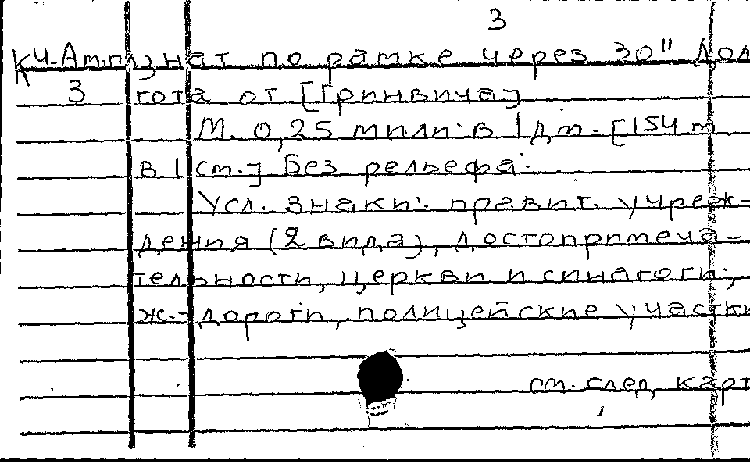 3
К4-Ам знат по рамке через 30" Дол
3 гота от [Гринвича]
М. 0,25 мили: в 1 дм. [154 м
в 1 см.] Без рельефа.
Усл. знаки: правит. учреж-
дения (2 вида), достопримеча-
тельности, церкви и синагоги,
ж.-дороги, полицейские участки
см. след. карт